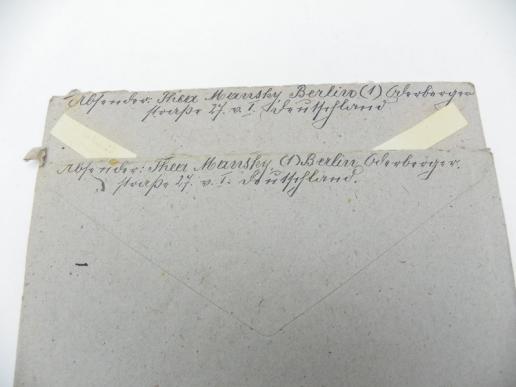 Absender: Thea Mansky Berlin (1) Oderberger
straße 27. v. I. Deutschland
Absender: Thea Mansky, (1) Berlin, Oderberger.
straße 27. v. I. Deutschland.